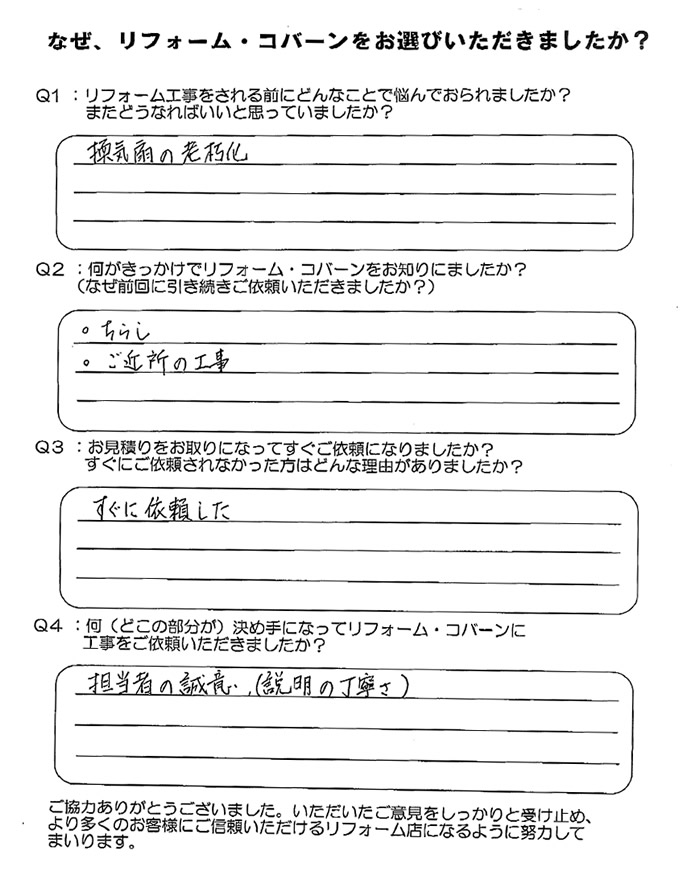 なぜ、リフォーム・コバーンをお選びいただきましたか？
Q1：リフォーム工事をされる前にどんなことで悩んでおられましたか？
またどうなればいいと思っていましたか？
換気扇の老朽化
Q2：何がきっかけでリフォーム・コバーンをお知りにましたか？
（なぜ前回に引き続きご依頼いただきましたか？）
○ ちらし
○ ご近所の工事
Q3：お見積りをお取りになってすぐご依頼になりましたか？
すぐにご依頼されなかった方はどんな理由がありましたか？
すぐに依頼した
Q4：何（どこの部分が）決め手になってリフォーム・コバーンに
工事をご依頼いただきましたか？
担当者の誠意、（説明の丁寧さ）
ご協力ありがとうございました。いただいたご意見をしっかりと受け止め、
より多くのお客様にご信頼いただけるリフォーム店になるように努力して
まいります。